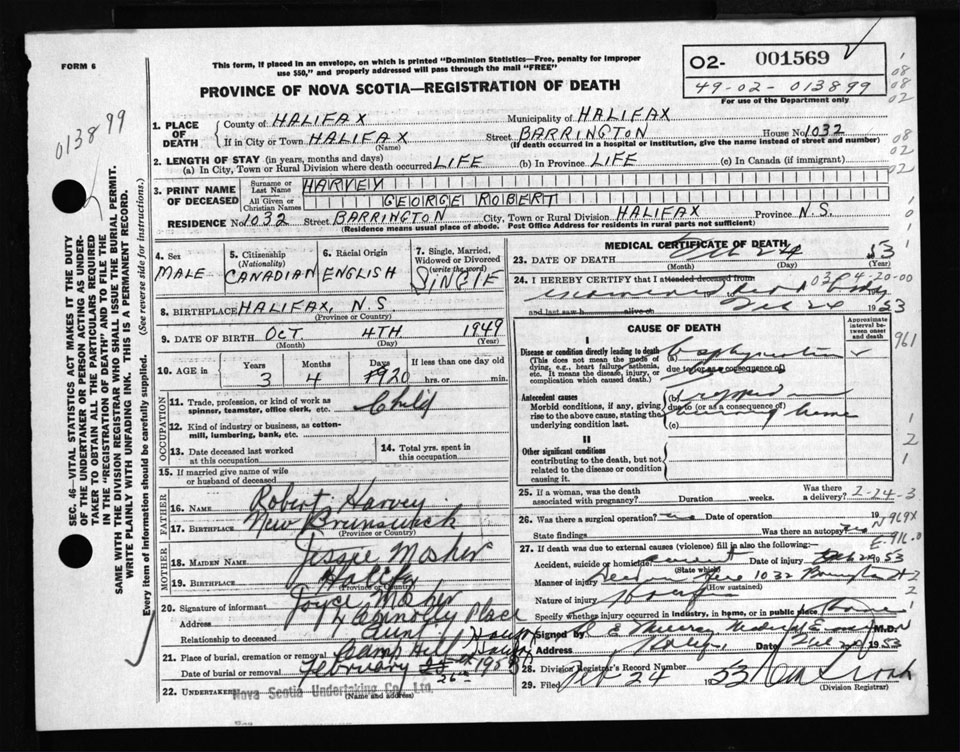 FORM 6
This form, if placed in an envelope, on which is printed "Dominion Statistics—Free, penalty for improper
use $50," and properly addressed will pass through the mail "FREE"
PROVINCE OF NOVA SCOTIA—REGISTRATION OF DEATH
O2- 001569
49-02-013899
For use of the Department only
013899
1. PLACE OF DEATH
County of HALIFAX Municipality of HALIFAX
If in City or Town HALIFAX Street BARRINGTON House No 1032
(Name) (If death occurred in a hospital or institution, give the name instead of street and number)
2. LENGTH OF STAY (in years, months and days)
(a) In City, Town or Rural Division where death occurred LIFE (b) In Province LIFE (c) In Canada (if immigrant)
3. PRINT NAME OF DECEASED
Surname or Last Name HARVEY
All Given or Christian Names GEORGE ROBERT
RESIDENCE No 1032 Street BARRINGTON City, Town or Rural Division HALIFAX Province N.S.
(Residence means usual place of abode. Post Office Address for residents in rural parts not sufficient)
4. Sex MALE
5. Citizenship (Nationality) CANADIAN
6. Racial Origin ENGLISH
7. Single, Married, Widowed or Divorced (write the word) SINGLE
8. BIRTHPLACE HALIFAX, N.S.
(Province or Country)
9. DATE OF BIRTH OCT 4TH 1949
(Month) (Day) (Year)
10. AGE in Years Months Days If less than one day old
3 4 20 hrs. or min.
OCCUPATION
11. Trade, profession, or kind of work as spinner, teamster, office clerk, etc. Child
12. Kind of industry or business, as cotton-mill, lumbering, bank, etc.
13. Date deceased last worked at this occupation
14. Total yrs. spent in this occupation
15. If married give name of wife or husband of deceased
FATHER
16. Name Robert Harvey
17. Birthplace New Brunswick
(Province or Country)
MOTHER
18. MAIDEN NAME Jessie Mosher
19. BIRTHPLACE Halifax
(Province or Country)
20. Signature of informant Joyce
Address Connolly Place
Relationship to deceased Aunt
21. Place of burial, cremation or removal Camp Hill
Date of burial or removal February 26th 1953
22. UNDERTAKER Nova Scotia Undertaking Co., Ltd.
(Name and address)
MEDICAL CERTIFICATE OF DEATH
23. DATE OF DEATH Feb 24 53
(Month) (Day) (Year)
24. I HEREBY CERTIFY that I attended deceased from
and last saw h alive on Feb 24 1953
CAUSE OF DEATH
Approximate interval between onset and death
I
Disease or condition directly leading to death (a) asphyxiation
(This does not mean the mode of dying, e.g., heart failure, asthenia, etc. It means the disease, injury, or complication which caused death.)
due to (or as a consequence of)
Antecedent causes (b) trapped in
Morbid conditions, if any, giving rise to the above cause, stating the underlying condition last.
due to (or as a consequence of) burning home
(c)
II
Other significant conditions
contributing to the death, but not related to the disease or condition causing it.
25. If a woman, was the death associated with pregnancy? Duration weeks. Was there a delivery?
26. Was there a surgical operation? no Date of operation 19
State findings Was there an autopsy? no
N 969X
E-916.0
27. If death was due to external causes (violence) fill in also the following:—
Accident, suicide or homicide? accident Date of injury Feb 24 1953
(State which)
Manner of injury 1032 Barrington
(How sustained)
Nature of injury
Specify whether injury occurred in industry, in home, or in public place Home
Signed by Murray Medical M.D.
Address Halifax Date Feb 24 1953
28. Division Registrar's Record Number
29. Filed Feb 24 1953
(Division Registrar)
SEC. 46—VITAL STATISTICS ACT MAKES IT THE DUTY
OF THE UNDERTAKER OR PERSON ACTING AS UNDER-
TAKER TO OBTAIN ALL THE PARTICULARS REQUIRED
IN THE "REGISTRATION OF DEATH" AND TO FILE THE
SAME WITH THE DIVISION REGISTRAR WHO SHALL ISSUE THE BURIAL PERMIT.
WRITE PLAINLY WITH UNFADING INK. THIS IS A PERMANENT RECORD.
Every item of information should be carefully supplied. (See reverse side for instructions.)